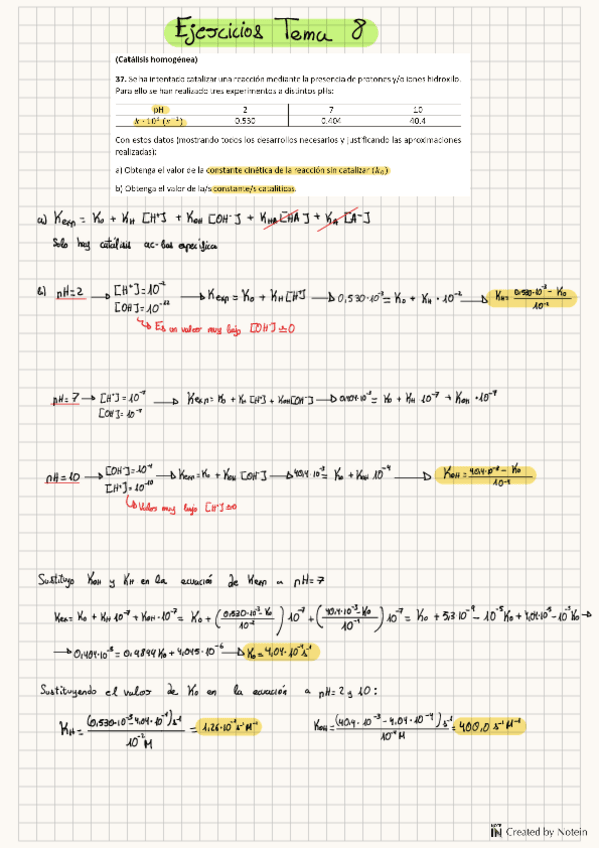 Ejercicios Tema 8
(Catálisis homogénea)
37. Se ha intentado catalizar una reacción mediante la presencia de protones y/o iones hidroxilo.
Para ello se han realizado tres experimentos a distintos pHs:
pH 2 7 10
k · 10³ (s⁻¹) 0.530 0.404 40.4
Con estos datos (mostrando todos los desarrollos necesarios y justificando las aproximaciones
realizadas):
a) Obtenga el valor de la constante cinética de la reacción sin catalizar (k₀)
b) Obtenga el valor de la/s constante/s catalíticas.
a) Kexp = K₀ + KH [H⁺] + KOH [OH⁻] + KHA [HA] + KA [A⁻]
Solo hay catálisis ac-bas específica
b) pH=2 → [H⁺]=10⁻² → Kexp = K₀ + KH [H⁺] → 0,530·10⁻³ = K₀ + KH · 10⁻² → KH = (0,530·10⁻³ - K₀)/10⁻²
[OH⁻]=10⁻¹²
↳ Es un valor muy bajo [OH⁻]≃0
pH=7 → [H⁺]=10⁻⁷ → Kexp = K₀ + KH [H⁺] + KOH [OH⁻] → 0,404·10⁻³ = K₀ + KH 10⁻⁷ + KOH · 10⁻⁷
[OH⁻]=10⁻⁷
pH=10 → [OH⁻]=10⁻⁴ → Kexp = K₀ + KOH [OH⁻] → 40,4·10⁻³ = K₀ + KOH 10⁻⁴ → KOH = (40,4·10⁻³ - K₀)/10⁻⁴
[H⁺]=10⁻¹⁰
↳ Valor muy bajo [H⁺]≃0
Sustituyo KOH y KH en la ecuación de Kexp a pH=7
Kexp = K₀ + KH 10⁻⁷ + KOH · 10⁻⁷ = K₀ + ((0,530·10⁻³ - K₀)/10⁻²) 10⁻⁷ + ((40,4·10⁻³ - K₀)/10⁻⁴) 10⁻⁷ = K₀ + 5,3·10⁻⁹ - 10⁻⁵K₀ + 4,04·10⁻⁵ - 10⁻³K₀ →
→ 0,404·10⁻³ = 0,9899 K₀ + 4,045·10⁻⁵ → K₀ = 4,04·10⁻⁴ s⁻¹
Sustituyendo el valor de K₀ en la ecuación a pH=2 y 10:
KH = (0,530·10⁻³ - 4,04·10⁻⁴) s⁻¹ / 10⁻² M = 1,26·10⁻² s⁻¹ M⁻¹
KOH = (40,4·10⁻³ - 4,04·10⁻⁴) s⁻¹ / 10⁻⁴ M = 400,0 s⁻¹ M⁻¹
Created by Notein